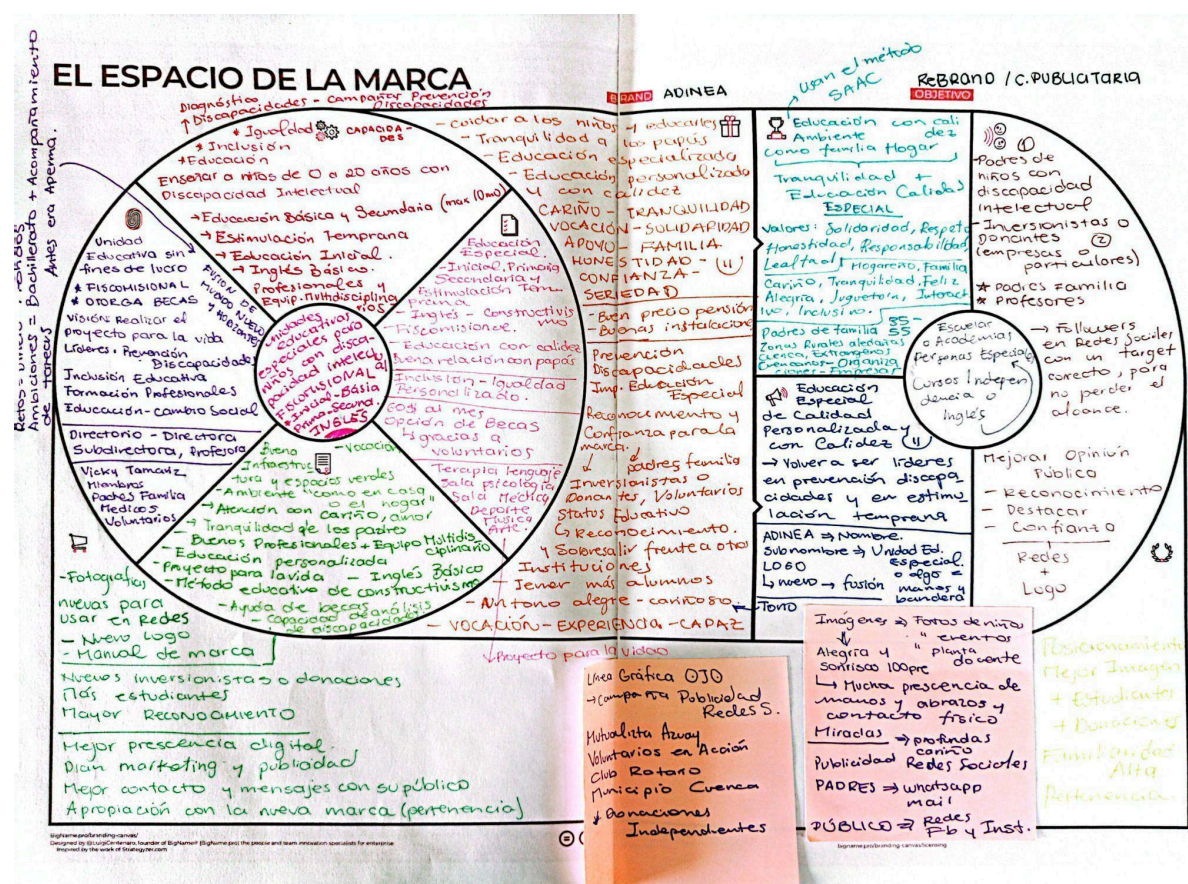 EL ESPACIO DE LA MARCA
BRAND ADINEA
Usan el método
SAAC
ReBRAND / C. PUBLICITARIA
OBJETIVO
Ambiciones = Bachillerato + Acompañamiento
de tareas
Antes era Aperma.
FUSION DE
MUNDO NUEVO
Y HORIZONTES
Diagnóstico
↑ Discapacidades - Campañas Prevención
Discapacidades
* Igualdad
CAPACIDADES
* Inclusión
* Educación
Enseñar a niños de 0 a 20 años con
Discapacidad Intelectual
→ Educación Básica y Secundaria (max 10mo)
→ Estimulación Temprana
→ Educación Inicial.
→ Inglés Básicas.
Profesionales y
Equip. Multidisciplinarios
Unidad
Educativa sin
fines de lucro
* FISCOMISIONAL
* OTORGA BECAS
Visión: Realizar el
proyecto para la vida
Líderes: Prevención
Discapacidades
Inclusión Educativa
Formación Profesionales
Educación - cambio Social
Directorio - Directora
Subdirectora, Profesora
Vicky Tamariz
Miembros
Padres Familia
Médicos
Voluntarios
Unidades
Educativas
especiales para
niños con disca-
pacidad intelectual
FISCOMISIONAL
* Inicial - Básia
Prima - Secund.
INGLÉS
Educación
Especial.
- Inicial, Primaria
Secundaria y
Estimulación Tem
prana
- Inglés - Constructivis
mo
- Fiscomisional.
- Educación con calidez
Buena relación con papás
Inclusión - Igualdad
Personalizado.
$031 al mes
Opción de Becas
gracias a
voluntarios
Terapia lenguaje
Sala psicología
Sala Médica
Deporte
Música
Arte.
↓ Proyecto para la vida
Buena - Vocación
Infraestruc
tura y espacios verdes
- Ambiente "como en casa"
o el hogar
→ Atención con cariño, amor
→ Tranquilidad de los padres
- Buenos Profesionales + Equipo Multidis
ciplinario
- Educación personalizada
- Proyecto para la vida - Inglés Básico
- Método educativo de constructivismo
- Ayuda de becas
- Capacidad de análisis
de discapacidades
- Cuidar a los niños y educarles
- Tranquilidad a los papás
- Educación especializada
- Educación personalizada
y con calidez
CARIÑO - TRANQUILIDAD
VOCACIÓN - SOLIDARIDAD
APOYO - FAMILIA
HONESTIDAD -
CONFIANZA -
SERIEDAD
- Buen precio pensión
- Buenas instalaciones
Prevención
Discapacidades
Imp. Educación
Especial
Reconocimiento y
Confianza para la
marca.
↓ padres familia
Inversionistas o
Donantes, Voluntarios
Status Educativo
↳ Reconocimiento.
y Sobresalir frente a otros
Instituciones
- Tener más alumnos
- Un tono alegre - cariñoso
- VOCACIÓN - EXPERIENCIA - CAPAZ
Educación con cali
dez
Ambiente
como familia Hogar
Tranquilidad +
Educación Calidad
ESPECIAL
Valores: Solidaridad, Respeto
Honestidad, Responsabilidad
Lealtad | Hogareño, Familia
Cariño, Tranquilidad, Feliz
Alegría, Juguetón, Interact
ivo, Inclusivo.
Padres de familia 35-
55
Zonas Rurales aledañas
Cuenca, Extranjeros
Cuencanos - Organiza
ciones - Empresas
Educación
Especial
de Calidad
Personalizada y
con Calidez
→ Volver a ser líderes
en prevención discapa
cidades y en estimu
lación temprana
ADINEA ⇒ Nombre.
Subnombre ⇒ Unidad Ed.
Especial.
LOGO
↳ nuevo → fusión
o algo =
manos y
bandera
← Tono
- Padres de
niños con
discapacidad
intelectual
- Inversionistas o
Donantes
(empresas o
particulares)
* Padres Familia
* Profesores
→ Followers
en Redes Sociales
con un target
correcto, para
no perder el
alcance.
Escuelas
o Academias
Personas Especiales
Cursos Indepen
dencia o
Inglés
Mejorar Opinión
Público
- Reconocimiento
- Destacar
- Confianza
Redes
+
Logo
- Fotografías
nuevas para
usar en Redes
- Nuevo Logo
- Manual de marca
Nuevos inversionistas o donaciones
Más estudiantes
Mayor RECONOCIMIENTO
Mejor prescencia digital.
Plan marketing y publicidad
Mejor contacto y mensajes con su público
Apropiación con la nueva marca (pertenencia)
Línea Gráfica OJO
→ Campaña Publicidad
Redes S.
Mutualista Azuay
Voluntarios en Acción
Club Rotario
Municipio Cuenca
↓ Donaciones
Independientes
Imágenes ⇒ Fotos de niños
" eventos
Alegría y " planta
sonrisa 100pre docente
↳ Mucha prescencia de
manos y abrazos y
contacto físico
Miradas ⇒ profundas
cariño
Publicidad Redes Sociales
PADRES ⇒ whatsapp
mail
PÚBLICO ⇒ Redes
Fb y Inst.
Posicionamiento
Mejor Imagen
+ Estudiantes
+ Donaciones
Familiaridad
Alta
Pertenencia.
BigName.pro/branding-canvas/
Designed by @LuigiCentenaro, founder of BigName® (BigName.pro) the people and team innovation specialists for enterprise
Inspired by the work of Strategyzer.com
bigname.pro/branding-canvas/licensing